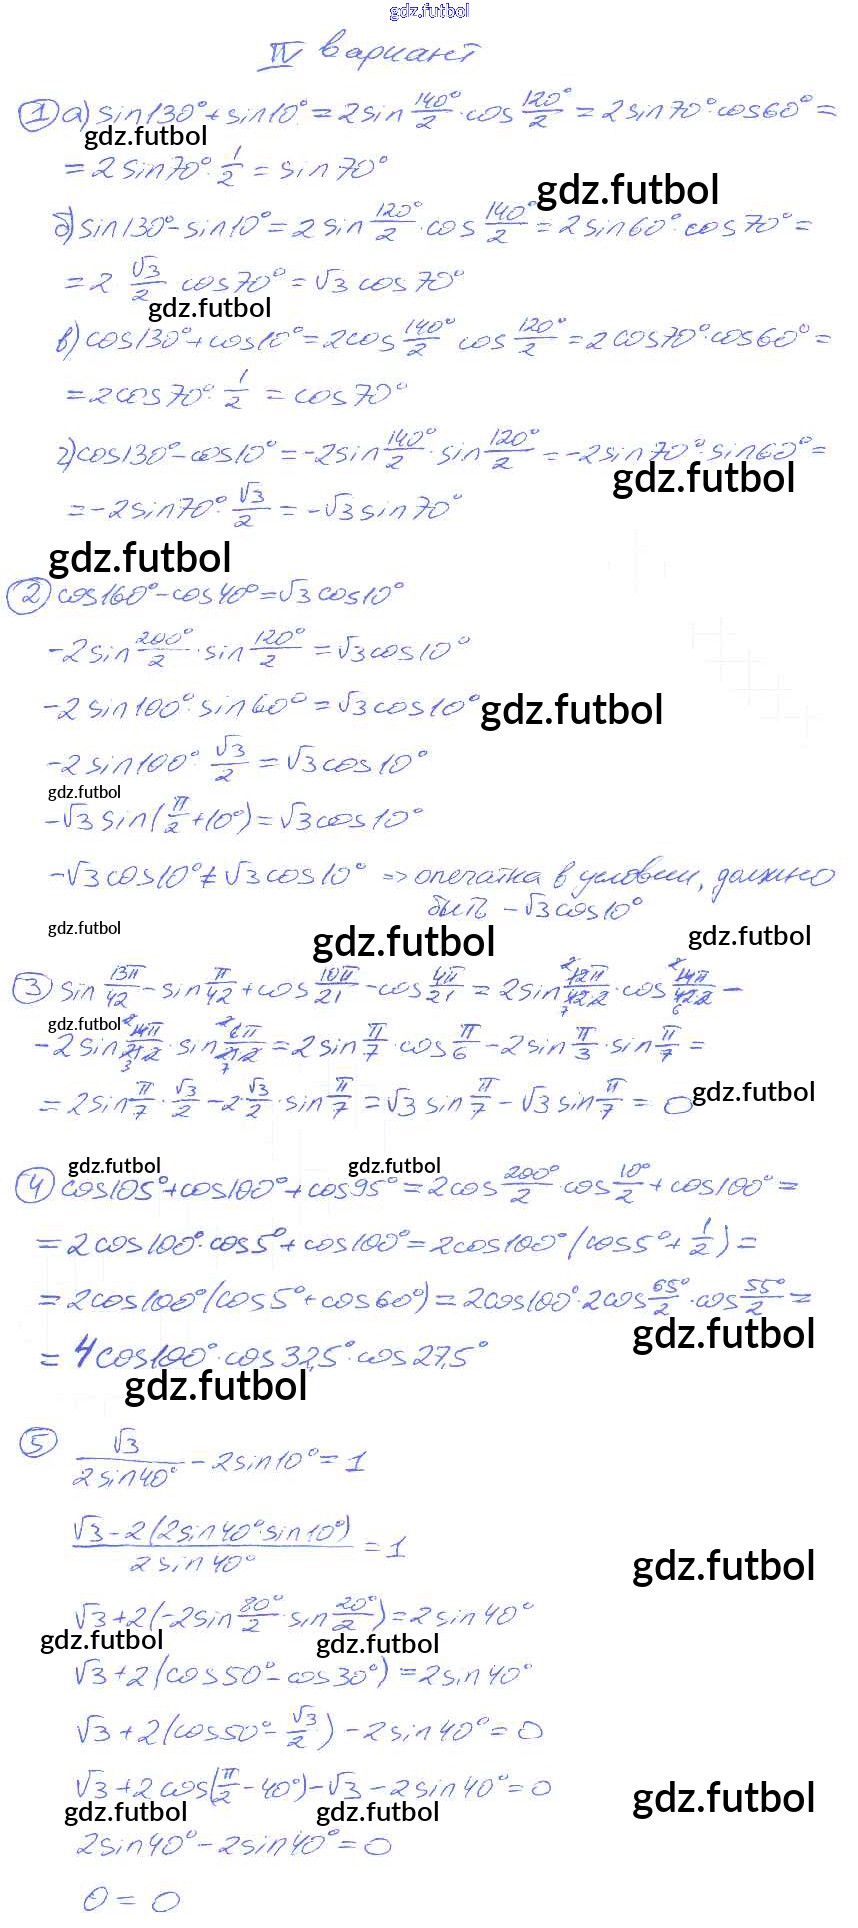 gdz.futbol
IV вариант
1 а) sin130°+sin10°=2sin 140°/2 · cos 120°/2 = 2sin70°·cos60°=
gdz.futbol
=2sin70°· 1/2 = sin70°
gdz.futbol
б) sin130°-sin10°=2sin 120°/2 · cos 140°/2 = 2sin60°·cos70°=
=2 √3/2 cos70°=√3 cos70°
gdz.futbol
в) cos130°+cos10°=2cos 140°/2 cos 120°/2 = 2cos70°·cos60°=
=2cos70°· 1/2 = cos70°
г) cos130°-cos10°=-2sin 140°/2 · sin 120°/2 = -2sin70°·sin60°=
gdz.futbol
=-2sin70°· √3/2 = -√3sin70°
gdz.futbol
2 cos160°-cos40°=√3cos10°
-2sin 200°/2 · sin 120°/2 = √3cos10°
-2sin100°·sin60°=√3cos10°
gdz.futbol
-2sin100°· √3/2 = √3cos10°
gdz.futbol
-√3sin(π/2+10°)=√3cos10°
-√3cos10°≠√3cos10° => опечатка в условии, должно
быть -√3cos10°
gdz.futbol
gdz.futbol
gdz.futbol
3 sin 13π/42 - sin π/42 + cos 10π/21 - cos 4π/21 = 2sin 12π/42·2 · cos 14π/42·2 -
gdz.futbol
-2sin 14π/21·2 · sin 6π/21·2 = 2sin π/7 · cos π/6 - 2sin π/3 · sin π/7 =
=2sin π/7 · √3/2 - 2· √3/2 · sin π/7 = √3 sin π/7 - √3 sin π/7 = 0
gdz.futbol
gdz.futbol
gdz.futbol
4 cos105°+cos100°+cos95°=2cos 200°/2 · cos 10°/2 + cos100°=
=2cos100°·cos5°+cos100°=2cos100°(cos5°+ 1/2)=
=2cos100°(cos5°+cos60°)=2cos100°·2cos 65°/2 · cos 55°/2 =
gdz.futbol
=4cos100°·cos32,5°·cos27,5°
gdz.futbol
5 √3/2sin40° - 2sin10°=1
√3-2(2sin40°·sin10°)/2sin40° = 1
gdz.futbol
√3+2(-2sin 80°/2 · sin 20°/2)=2sin40°
gdz.futbol
gdz.futbol
√3+2(cos50°-cos30°)=2sin40°
√3+2(cos50°- √3/2)-2sin40°=0
√3+2cos(π/2-40°)-√3-2sin40°=0
gdz.futbol
gdz.futbol
gdz.futbol
2sin40°-2sin40°=0
0=0